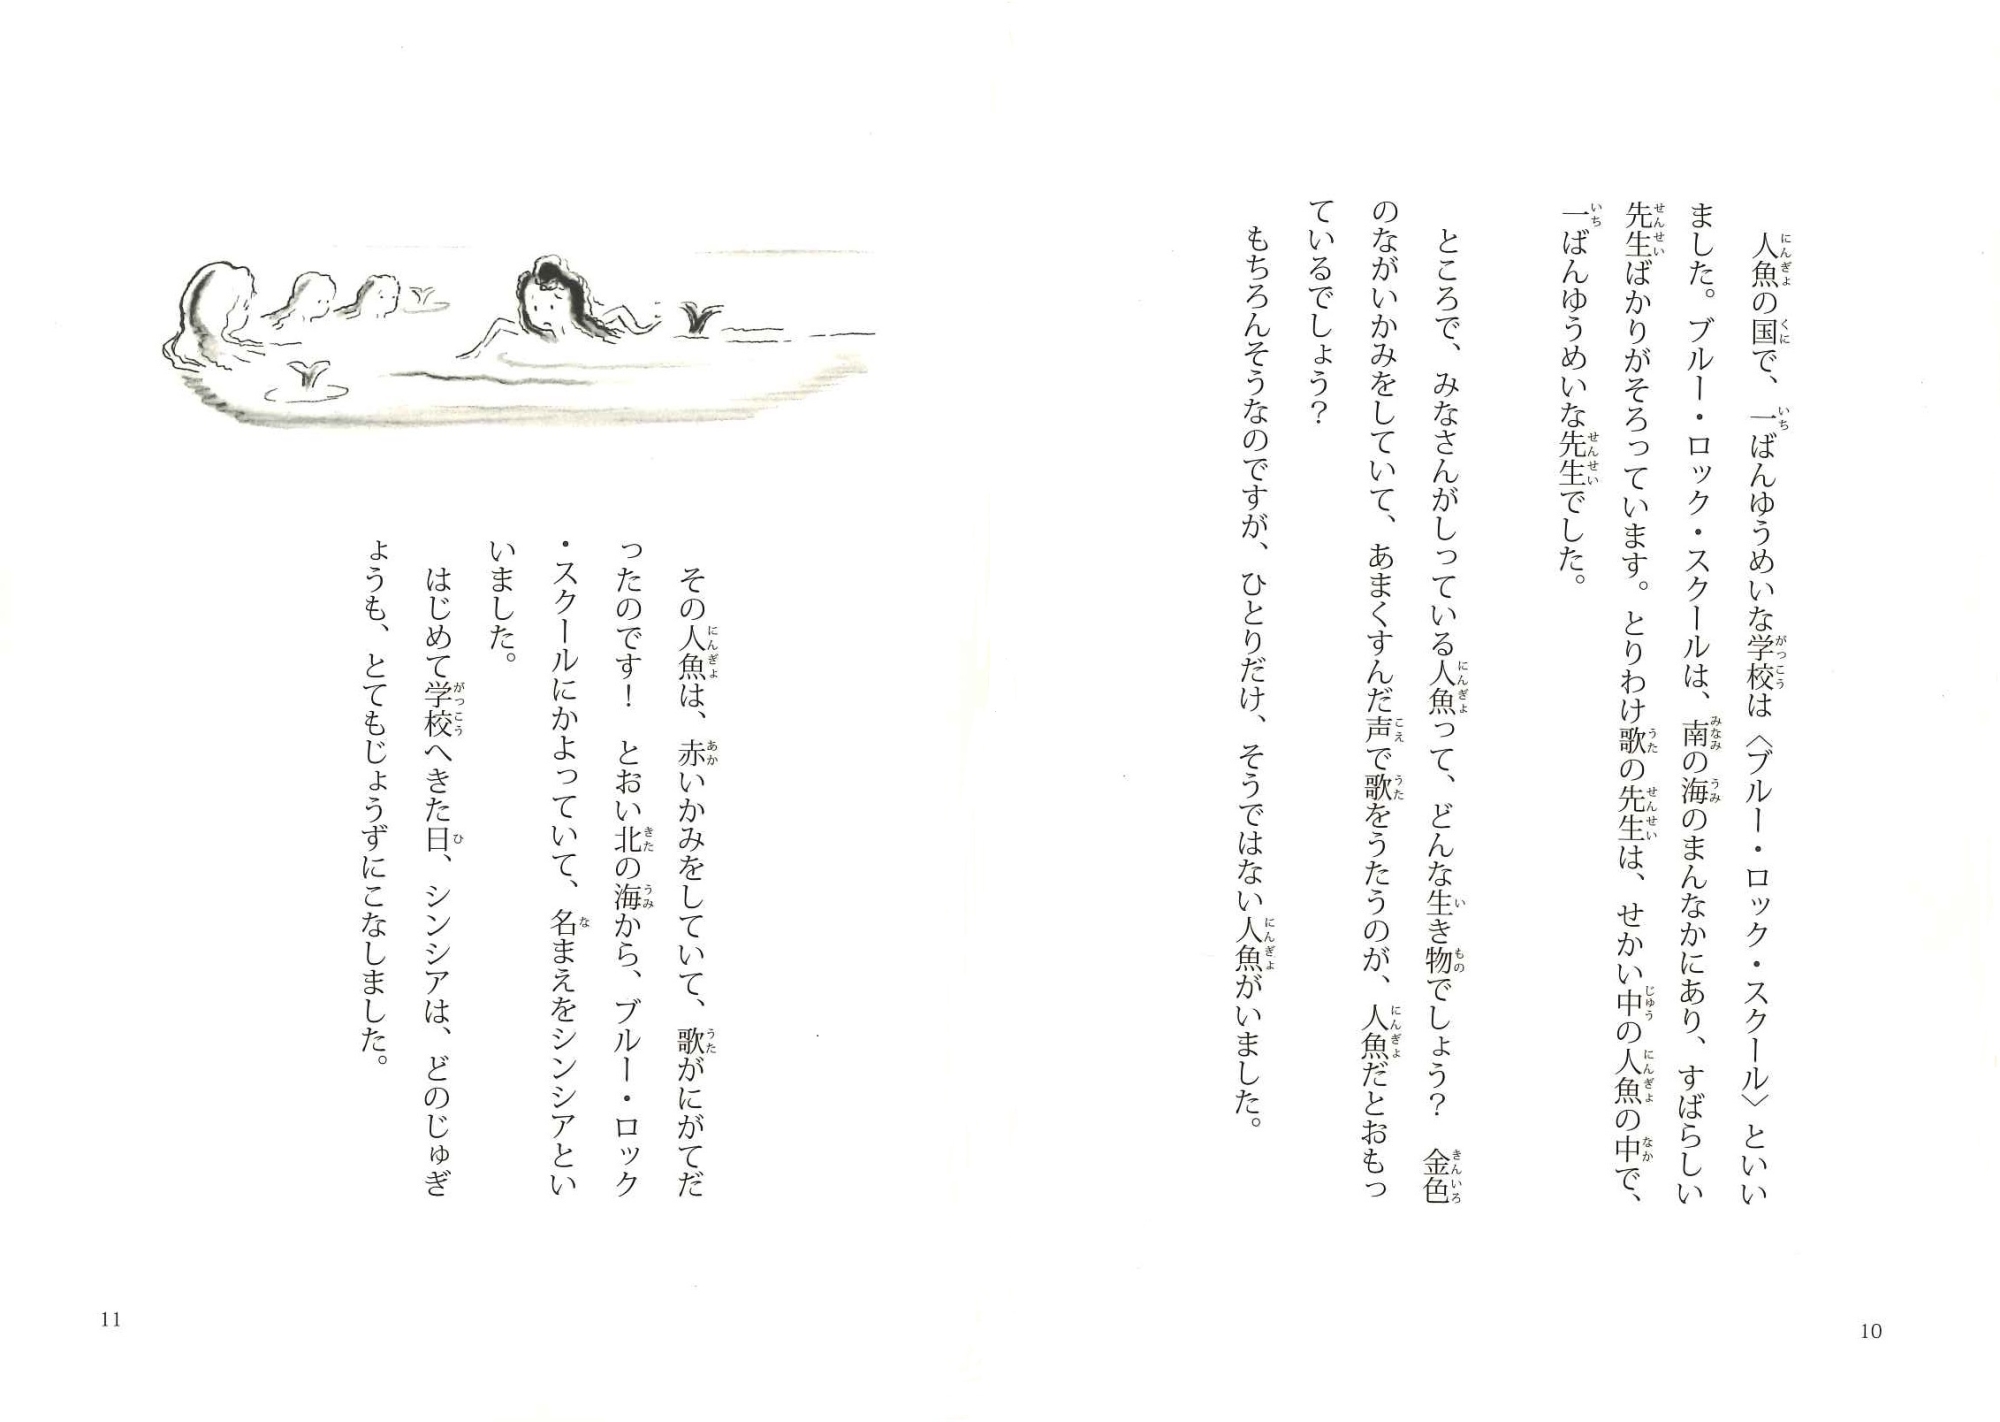 人魚の国で、一ばんゆうめいな学校は〈ブルー・ロック・スクール〉といい
ました。ブルー・ロック・スクールは、南の海のまんなかにあり、すばらしい
先生ばかりがそろっています。とりわけ歌の先生は、せかい中の人魚の中で、
一ばんゆうめいな先生でした。
ところで、みなさんがしっている人魚って、どんな生き物でしょう？　金色
のながいかみをしていて、あまくすんだ声で歌をうたうのが、人魚だとおもっ
ているでしょう？
もちろんそうなのですが、ひとりだけ、そうではない人魚がいました。
10
その人魚は、赤いかみをしていて、歌がにがてだ
ったのです！　とおい北の海から、ブルー・ロック
・スクールにかよっていて、名まえをシンシアとい
いました。
はじめて学校へきた日、シンシアは、どのじゅぎ
ょうも、とてもじょうずにこなしました。
11